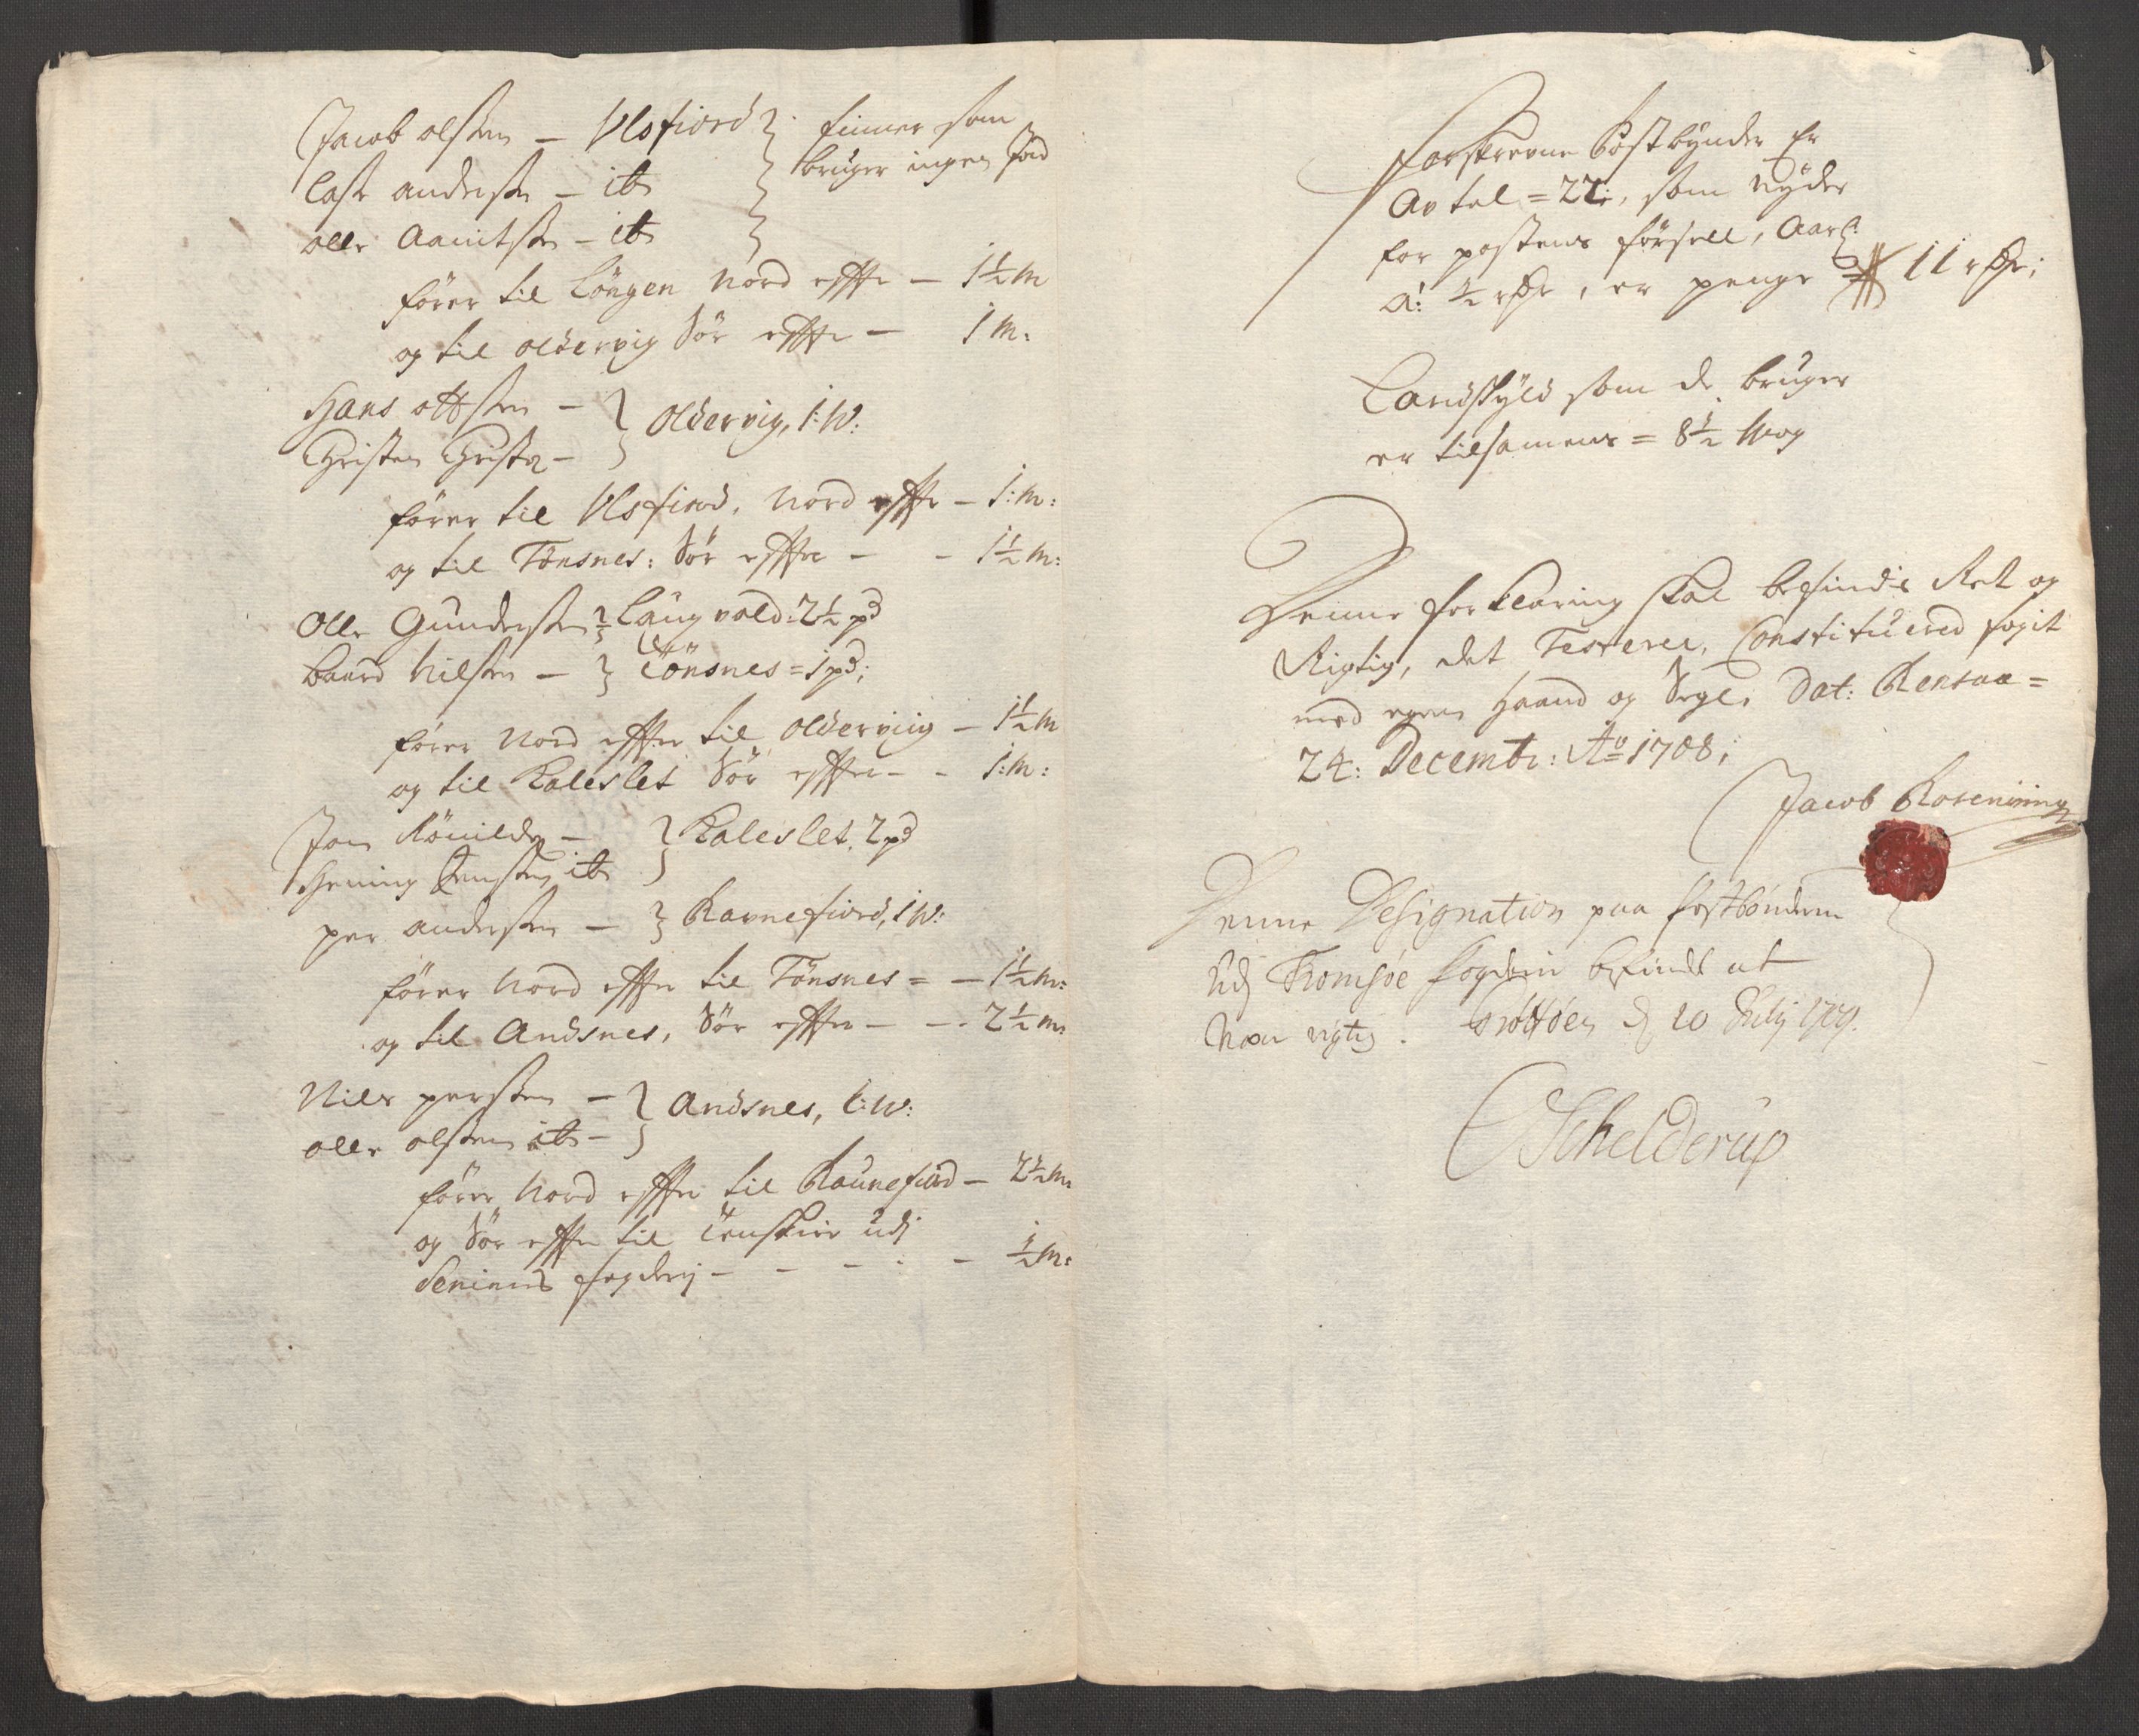 Jacob olsen – Ulsfiord } finner som
Lasse andersen – ib } bruger ingen Jord
olle Aamitsen – ib }
fører til Löngen Nord effter – 1½ m
og til oldervig Sör effter – 1 m:
Hans ottsen – } oldervig, 1: W:
Christen Christens –
fører til Ulsfiord, Nord effter – 1: m:
og til Tönsnes: Sör effter – – 1½ m:
Olle Gundersen } Laugvold: 2½ pd
baard Nilsen – } Tönsnes = 1 pd;
fører Nord effter til oldervig – 1½ m
og til Kaleslet Sör effter – – 1: m:
Jon – } Kaleslet, 2 pd
Hening Jensen ib
per andersen – } Ravnefiord, 1 W:
fører Nord effter til Tönsnes = – 1½ m:
og til Andsnes, Sör effter – – 2½ m:
Niels persen – } Andsnes, 1: W:
olle olsen ib –
fører Nord effter til Raunefiord – 2½ m:
og Sör effter til Tenskier udj
Senniens fogderj – – – – – ½ m:
Forskrevne Postbynder Er
Antal = 22:, som nyder
for postens förssell, Aarl:
a: ½ rdr, er penge 11 rdr;
Landskyld som de bruger
er tilsamens = 8½ Wog
Denne forklaring skal befindis Ret og
Rigtig, det Testerer, Constituered fogit
med egen Haand og Segl, Dat: Rensaa =
24: Decembr: Ao 1708;
Jacob Rosenving
Denne Designation paa Postbönderne
udj Tromsøe fogderie befindes at
være rigtig. d 20 Julij 1709.
Schelderup